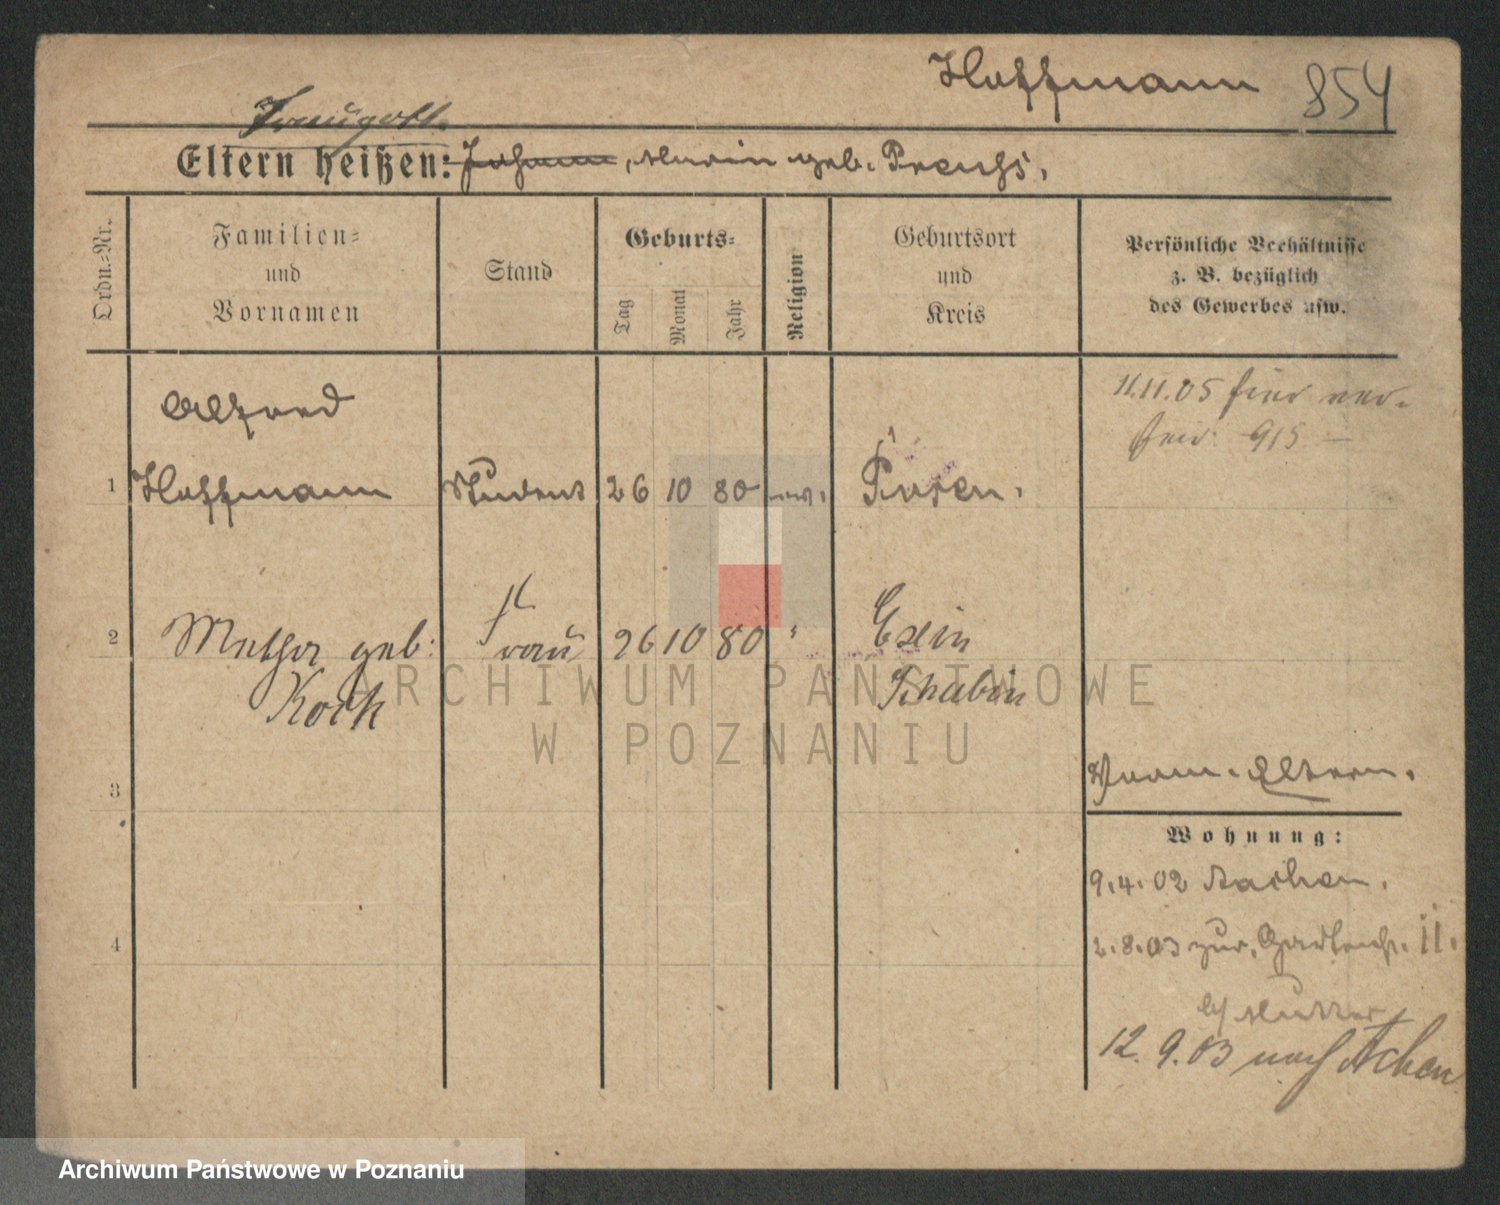 Hoffmann 854
Traugott
Eltern heißen: Johann, Marie geb. Preuhs.
Ordn.=Nr.
Familien=
und
Vornamen
Stand
Geburts=
Tag
Monat
Jahr
Religion
Geburtsort
und
Kreis
Persönliche Verhältnisse
z. B. bezüglich
des Gewerbes usw.
11.11.05 hier ver-
heir. 915
Alfred
1 Hoffmann Student 26 10 80 ev. Posen.
2 geb: Frau 26 10 80 " Exin
Koch Schubin
3
Eltern.
Wohnung:
9.4.02 Aachen.
4
2.8.03 zur. 11.
b/ Mutter
12.9.03 nach Achen
ARCHIWUM PAŃSTWOWE
W POZNANIU
Archiwum Państwowe w Poznaniu